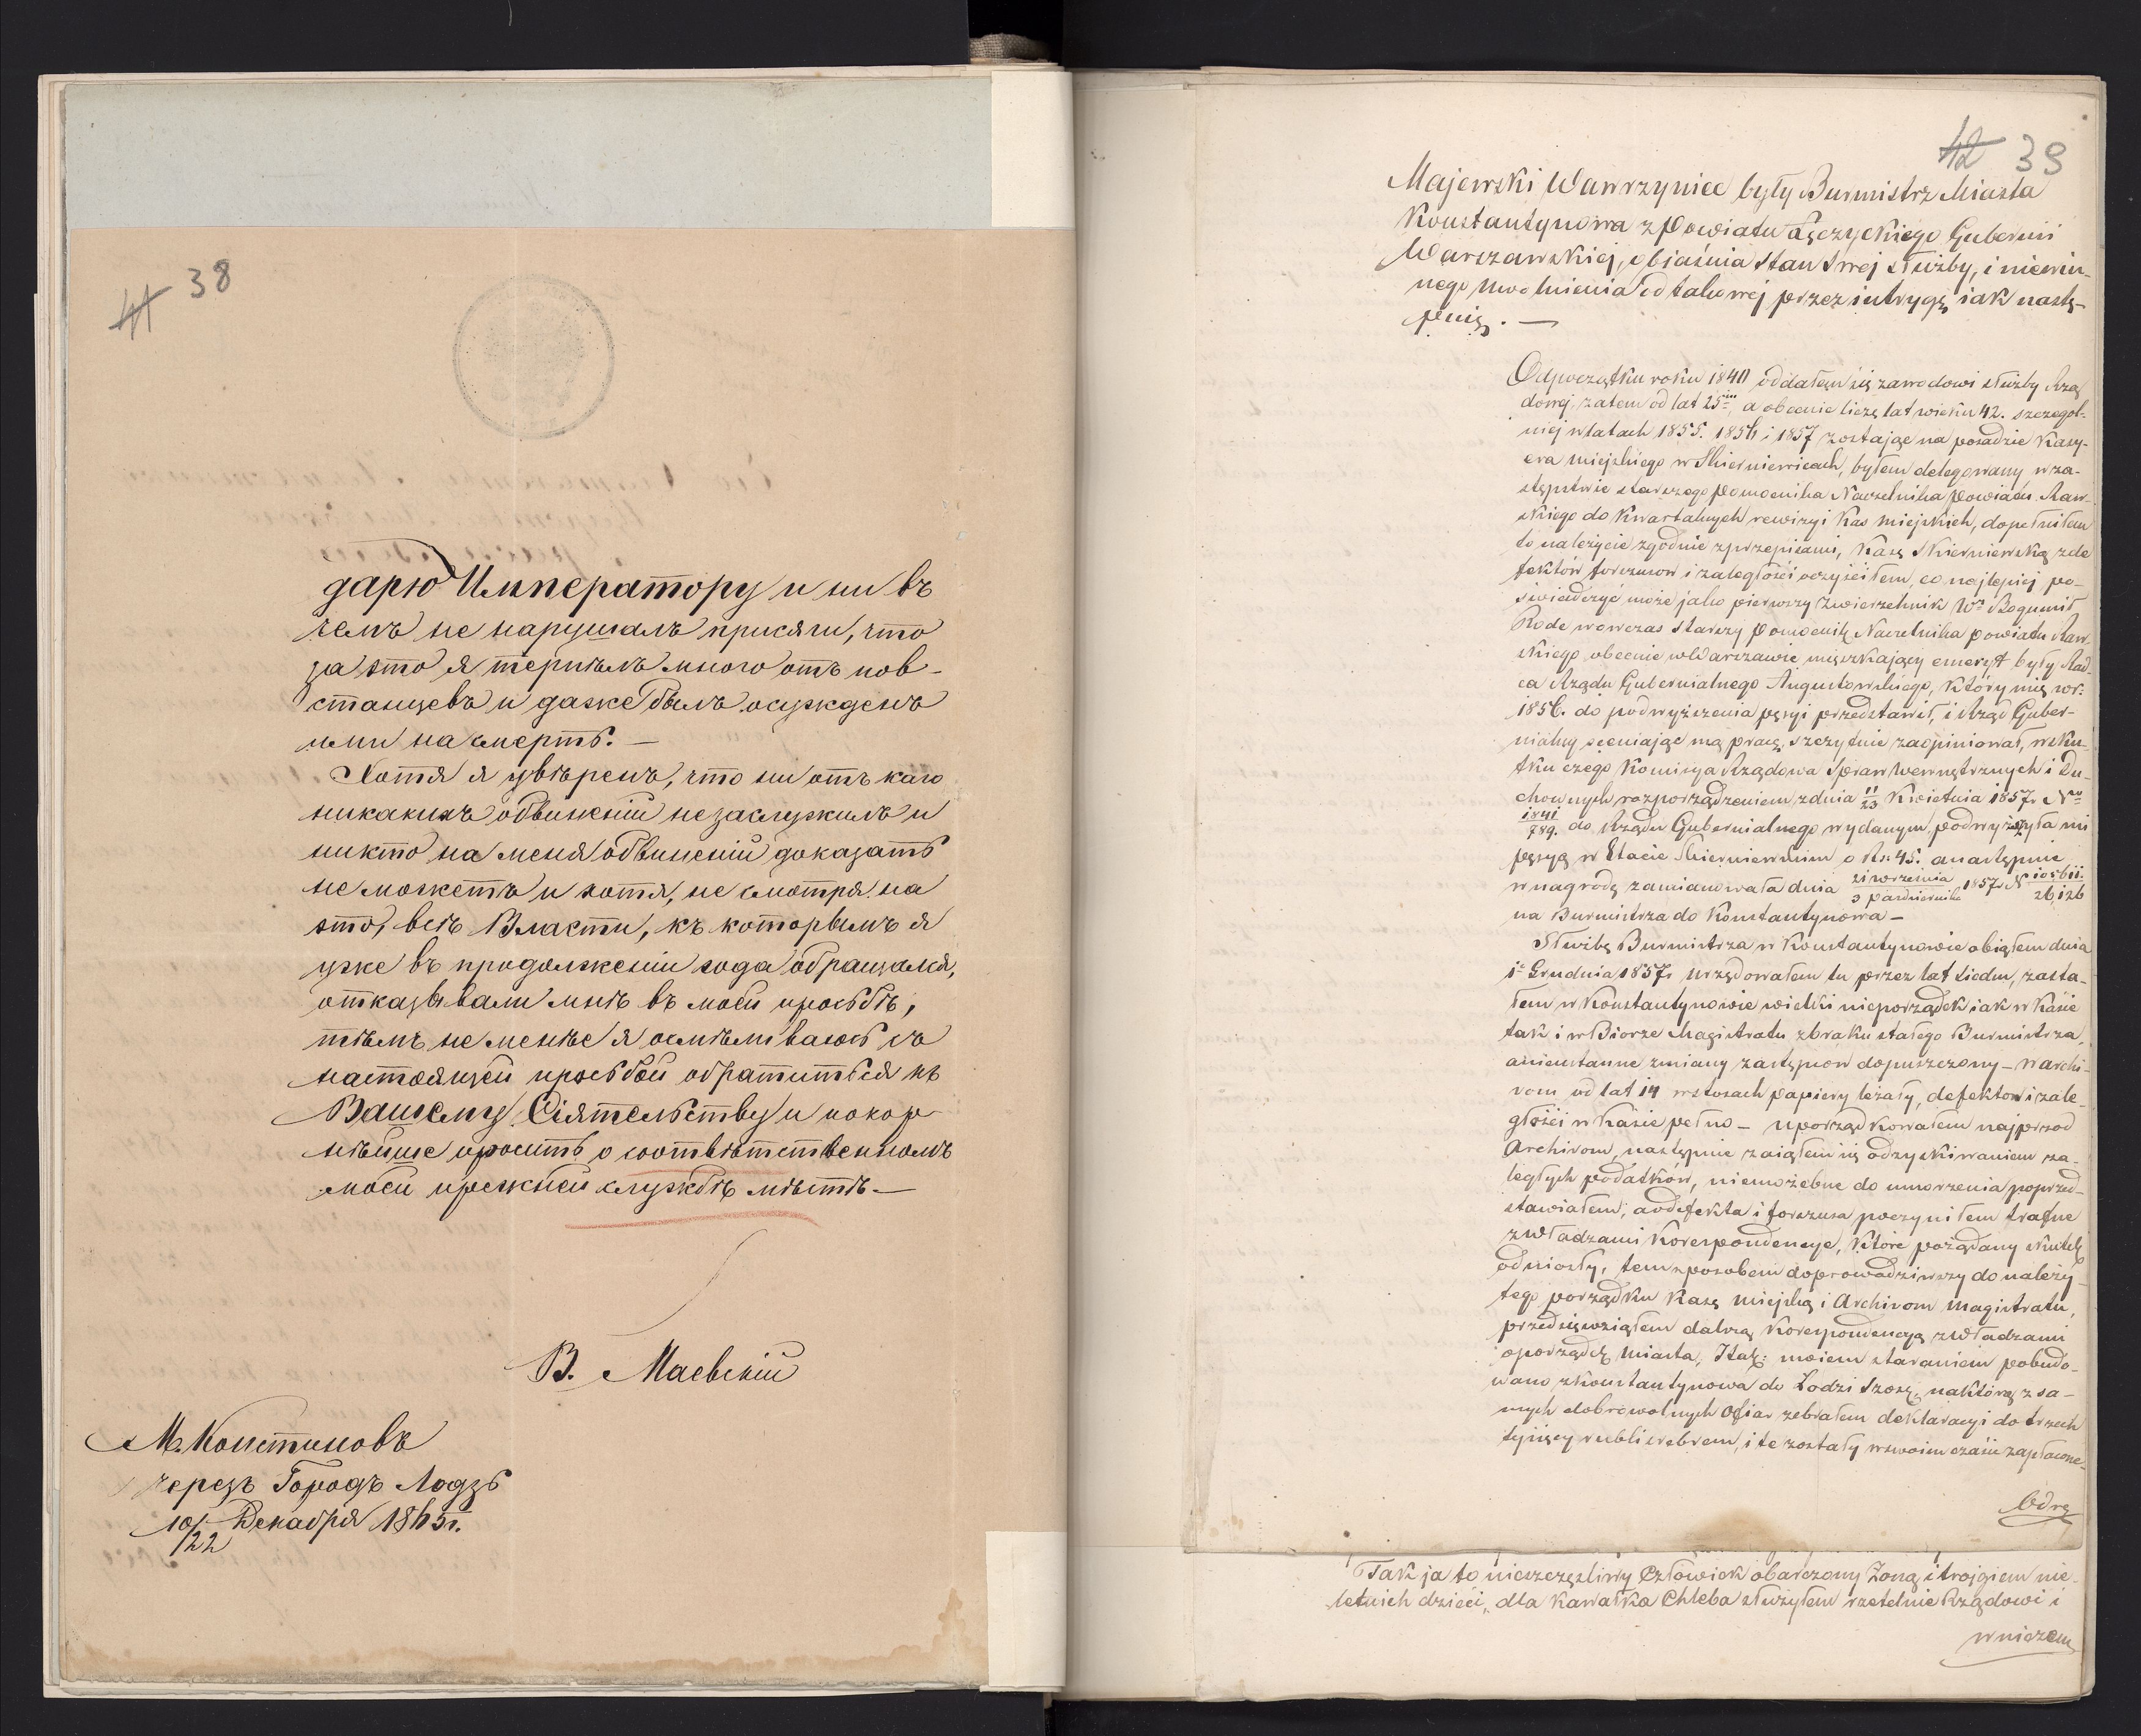 41 38
дарю Императору и ни въ
чемъ не нарушалъ присяги, что
за это я терпѣлъ много отъ пов-
станцевъ и даже былъ осужденъ
ими на смерть. —
Хотя я увѣренъ, что ни отъ кого
никакихъ обвиненій не заслужилъ и
никто на меня обвиненій доказать
не можетъ и хотя, не смотря на
это, всѣ Власти, къ которымъ я
уже въ продолженіи года обращался,
отказывали мнѣ въ моей просьбѣ,
тѣмъ не менѣе я осмѣливаюсь съ
настоящей просьбой обратиться къ
Вашему Сіятельству и покор-
нѣйше просить о соотвѣтственномъ
моей прежней службѣ мѣстѣ —
В. Маевскій
М. Констиновъ
черезъ Городъ Лодзь
10/22 Декабря 1865 г.
42 39
Majewski Wawrzyniec były Burmistrz Miasta
Konstantynowa z Powiatu Łęczyckiego Gubernii
Warszawskiej, objaśnia Stan Swej służby, i niewin-
nego uwolnienia od takowej przez intrygę iak nastę-
puię. —
Od początku roku 1840 oddałem się zawodowi służby Rzą
dowej, zatem od lat 25ciu, a obecnie liczę lat wieku 42. szczegól-
niej w latach 1855. 1856 i 1857 zostając na posadzie Kasy-
era miejskiego w Skierniewicach, byłem delegowany w za-
stępstwie starszego Pomocnika Naczelnika Powiatu Raw-
skiego do Kwartalnych rewizyi Kas miejskich, dopełniłem
to należycie zgodnie z przepisami, Kasę Skierniewską z de
fektów forszusow i zaległości oczyściłem, co najlepiej po-
świadczyć może jako pierwszy Zwierzchnik Wny Bogumił
Rode wowczas Starszy Pomocnik Naczelnika powiatu Raw-
skiego obecnie w Warszawie mięszkający emeryt były Rad
ca Rządu Gubernialnego Augustowskiego, który mię w r.
1856. do podwyższenia pęsyi przedstawił, i Rząd Guber-
nialny oceniając mą pracę, szczytnie zaopiniował, wsku-
tku czego Komisya Rządowa Spraw Wewnętrznych i Du-
chownych rozporządzeniem z dnia 11/23 Kwietnia 1857r No
1841/789. do Rządu Gubernialnego wydanym, podwyższyła mi
pęsyą w Etacie Skierniewskim o Rs. 45. a następnie
w nagrodę zamianowała dnia 21 września/3 Października 1857r N 10561ii./26,126
na Burmistrza do Konstantynowa —
Służbę Burmistrza w Konstantynowie obiąłem dnia
1o Grudnia 1857r urzędowałem tu przez lat siedm, zasta-
łem w Konstantynowie wielki nieporządek iak w Kasie
tak i w Biorze Magistratu z braku stałego Burmistrza,
a nieustanne zmiany zastępców dopuszczony — w archi-
vom od lat 14 w stosach papiery leżały, defektow i zale-
głości w Kasie pełno — uporządkowałem najprzod
Archivom, następnie zaiąłem się odzyskiwaniem za-
ległych podatków, niemożebne do umorzenia poprzed-
stawiałem, a o defekta i forszusa poczyniłem trafne
z Władzami Korespondencye, które pożądany skutek
odniosły, tem sposobem doprowadziwszy do należy-
tego porządku Kasę miejską i Archivom Magistratu,
przedsięwziąłem dalszą Korespondencyą z Władzami
o porządek Miasta, Itak: moiem staraniem pobudo-
wano z Konstantynowa do Łodzi Szosę, na którą z sa-
mych dobrowolnych Ofiar zebrałem deklaracyi do trzech
tysięcy rubli srebrem, i te zostały w swoim czasie zapłacone.
Odrę
Tak ja to nieszczęśliwy Człowiek obarczony Żoną i trojgiem nie-
letnich dzieci, dla Kawałka Chleba służyłem rzetelnie Rządowi i
w niczem